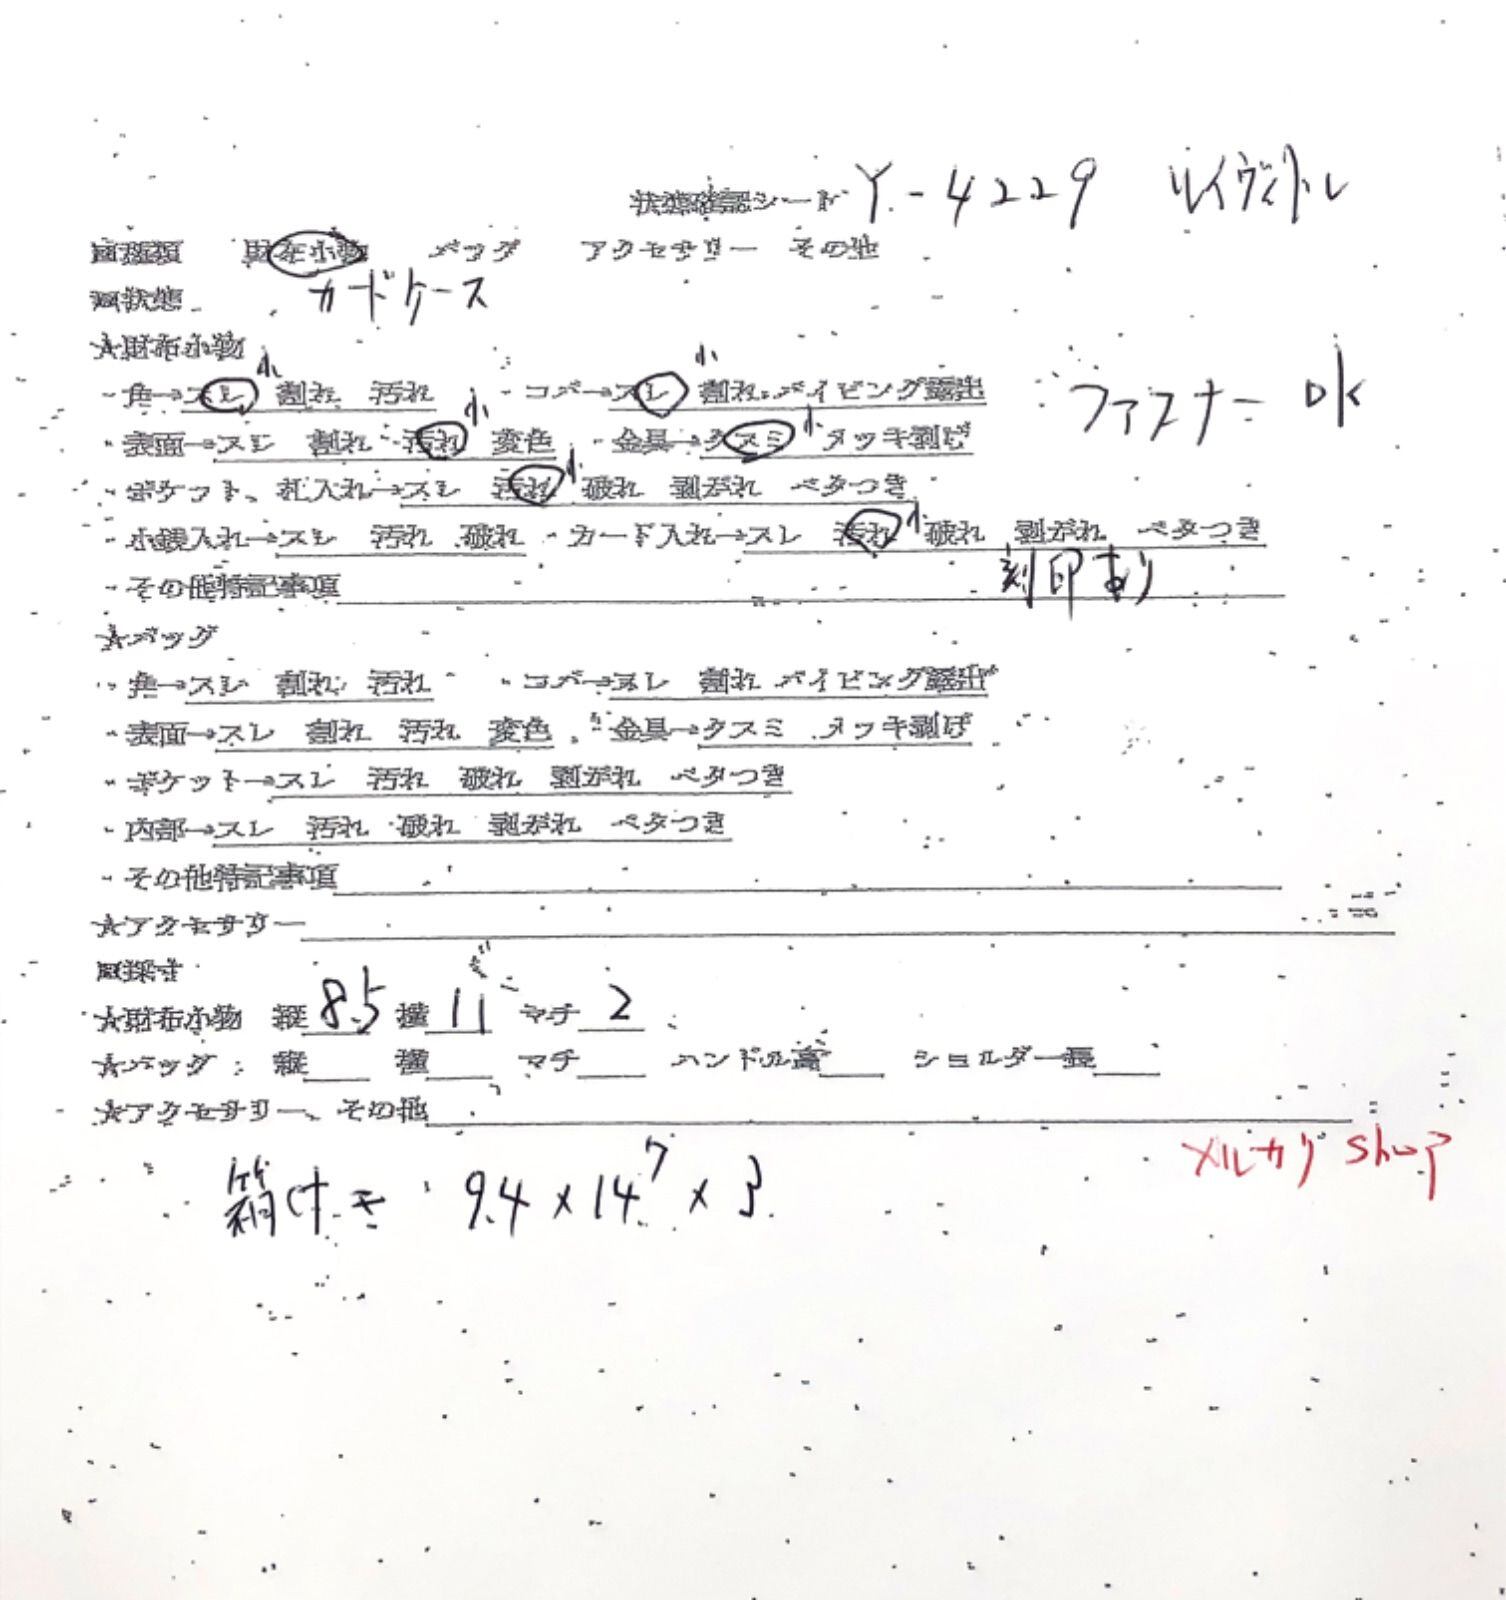 状態確認シート Y-4229 ルイヴィトン
■種類 財布小物 バッグ アクセサリー その他
■状態 カードケース
★財布小物
・角→スレ 小 割れ 汚れ ・コバ→スレ 小 割れ パイピング露出
ファスナー OK
・表面→スレ 割れ 汚れ 小 変色 ・金具→クスミ 小 メッキ剥げ
・ポケット、札入れ→スレ 汚れ 小 破れ 剥がれ ベタつき
・小銭入れ→スレ 汚れ 破れ ・カード入れ→スレ 汚れ 小 破れ 剥がれ ベタつき
・その他特記事項 刻印あり
★バッグ
・角→スレ 割れ 汚れ ・コバ→スレ 割れ パイピング露出
・表面→スレ 割れ 汚れ 変色 ・金具→クスミ メッキ剥げ
・ポケット→スレ 汚れ 破れ 剥がれ ベタつき
・内部→スレ 汚れ 破れ 剥がれ ベタつき
・その他特記事項
★アクセサリー
■採寸
★財布小物 縦 8.5 横 11 マチ 2
★バッグ 縦 横 マチ ハンドル高 ショルダー長
★アクセサリー、その他
メルカリ shop
箱付き 9.4×14.7×3